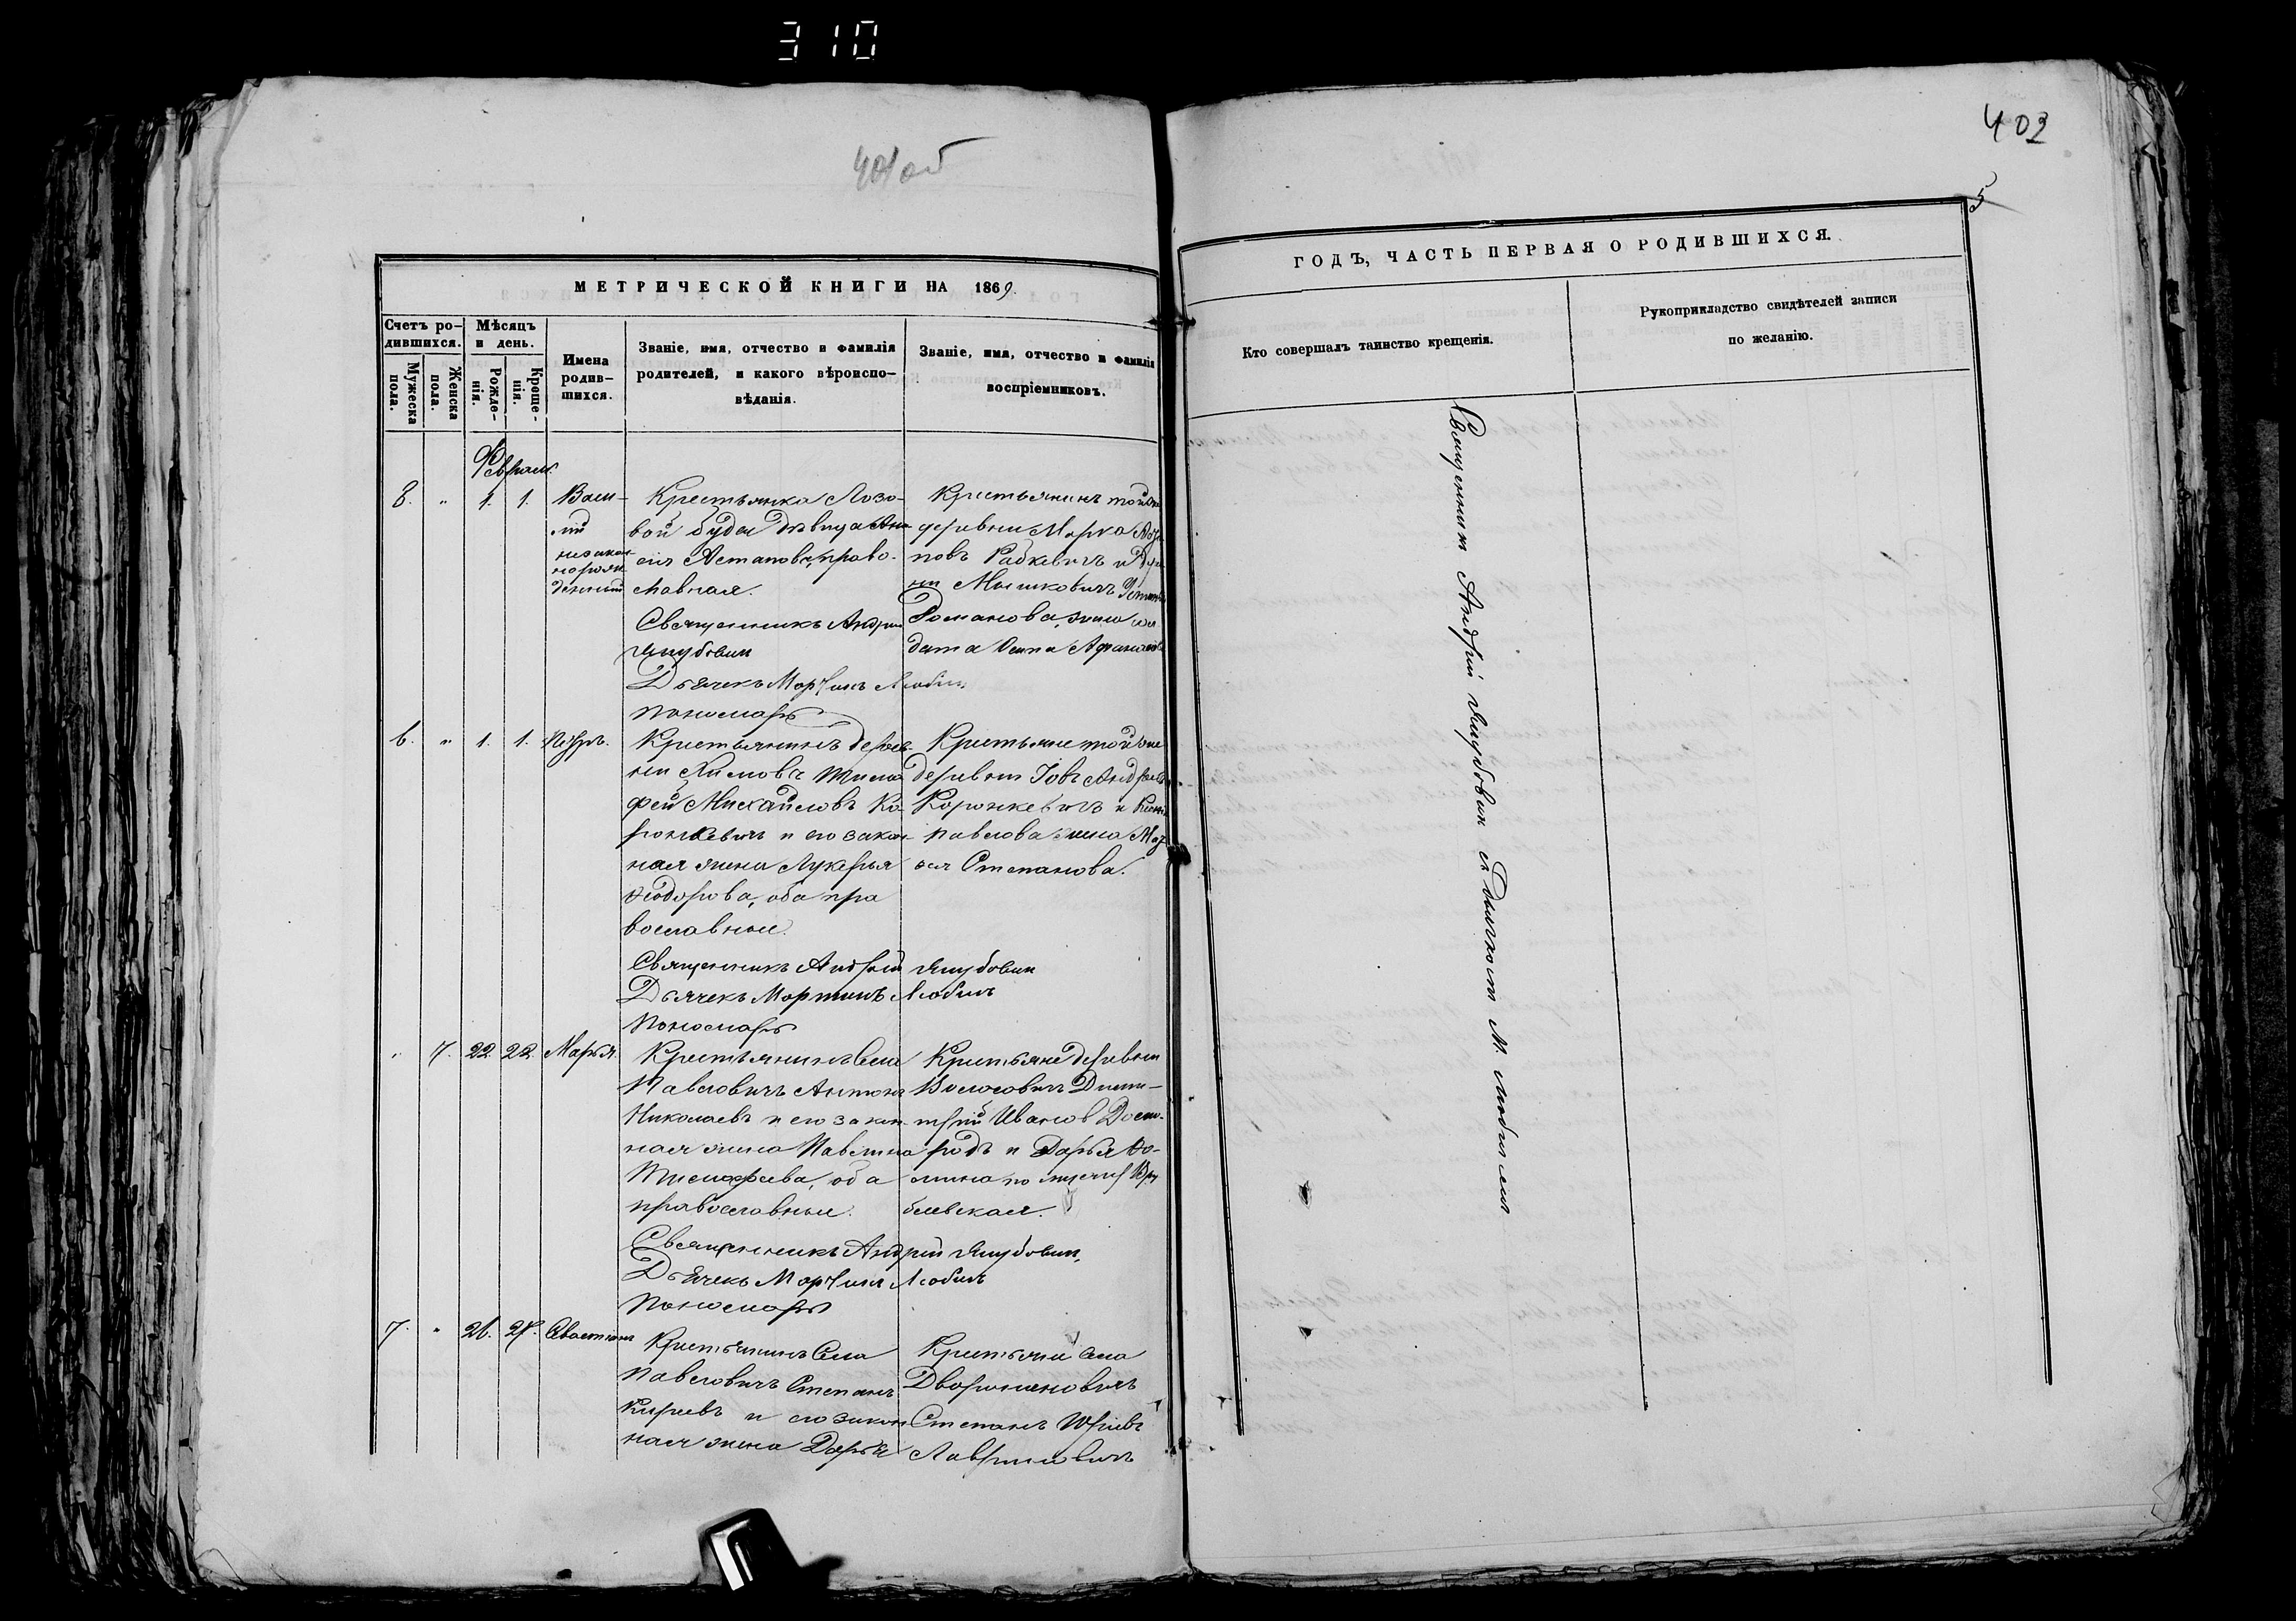 310
401об
402
5
МЕТРИЧЕСКОЙ КНИГИ НА 1869.
Счетъ ро-
дившихся.
Мужеска
пола.
Женска
пола.
Мѣсяцъ
и день.
Рожде-
нія.
Креще-
нія.
Имена
родив-
шихся.
Званіе, имя, отчество и фамилія
родителей, и какого вѣроиспо-
вѣданія.
Званіе, имя, отчество и фамилія
воспріемниковъ.
ГОДЪ, ЧАСТЬ ПЕРВАЯ О РОДИВШИХСЯ.
Кто совершалъ таинство крещенія.
Рукоприкладство свидѣтелей записи
по желанію.
Февраль
1. 1.
Васи-
лій
незакон-
норож-
денный
Крестьянка Лозо-
вой буды дѣвица
Астапова, право-
славная.
Священникъ Андрей
Якубович
Дьячекъ Мартинъ Любич
Пономарь
Крестьянинъ той же
деревни Марко
повъ Рабкевичъ и
Мышковичъ
Романова, жена сол
дата Осипа
6. " 1. 1. Петръ.
Крестьянинъ дерев-
ни Химовъ Тимо
фей Михайловъ Ко
ронкевичъ и его закон
ная жена Лукерья
Ѳеодорова, оба пра
вославные.
Священникъ Андрей Якубович
Дьячекъ Мартинъ Любичъ
Пономарь
Крестьяне той же
деревни Іовъ Андреевъ
Коронкевичъ и
Павлова жена
Степанова.
" 7. 22. 22. Марья.
Крестьянинъ села
Павловичъ Антонъ
Николаевъ и его закон
ная жена Павлина
Тимофеева, оба
православные.
Священникъ Андрей Якубович,
Дьячекъ Мартинъ Любичъ
Пономарь
Крестьяне деревни
Вологовичъ Дими-
трій Иванов
и Дарья Ѳо-
мина по мужу
блевская.
7. " 26. 27.
Крестьянинъ села
Павловичъ Степанъ
Киреевъ и его закон
ная жена Дарья
Крестьяне села
Дворяниновичъ
Степанъ Юрьевъ
Лавриновичъ
Священник Андрей Якубович с Дьячком М. Любичем